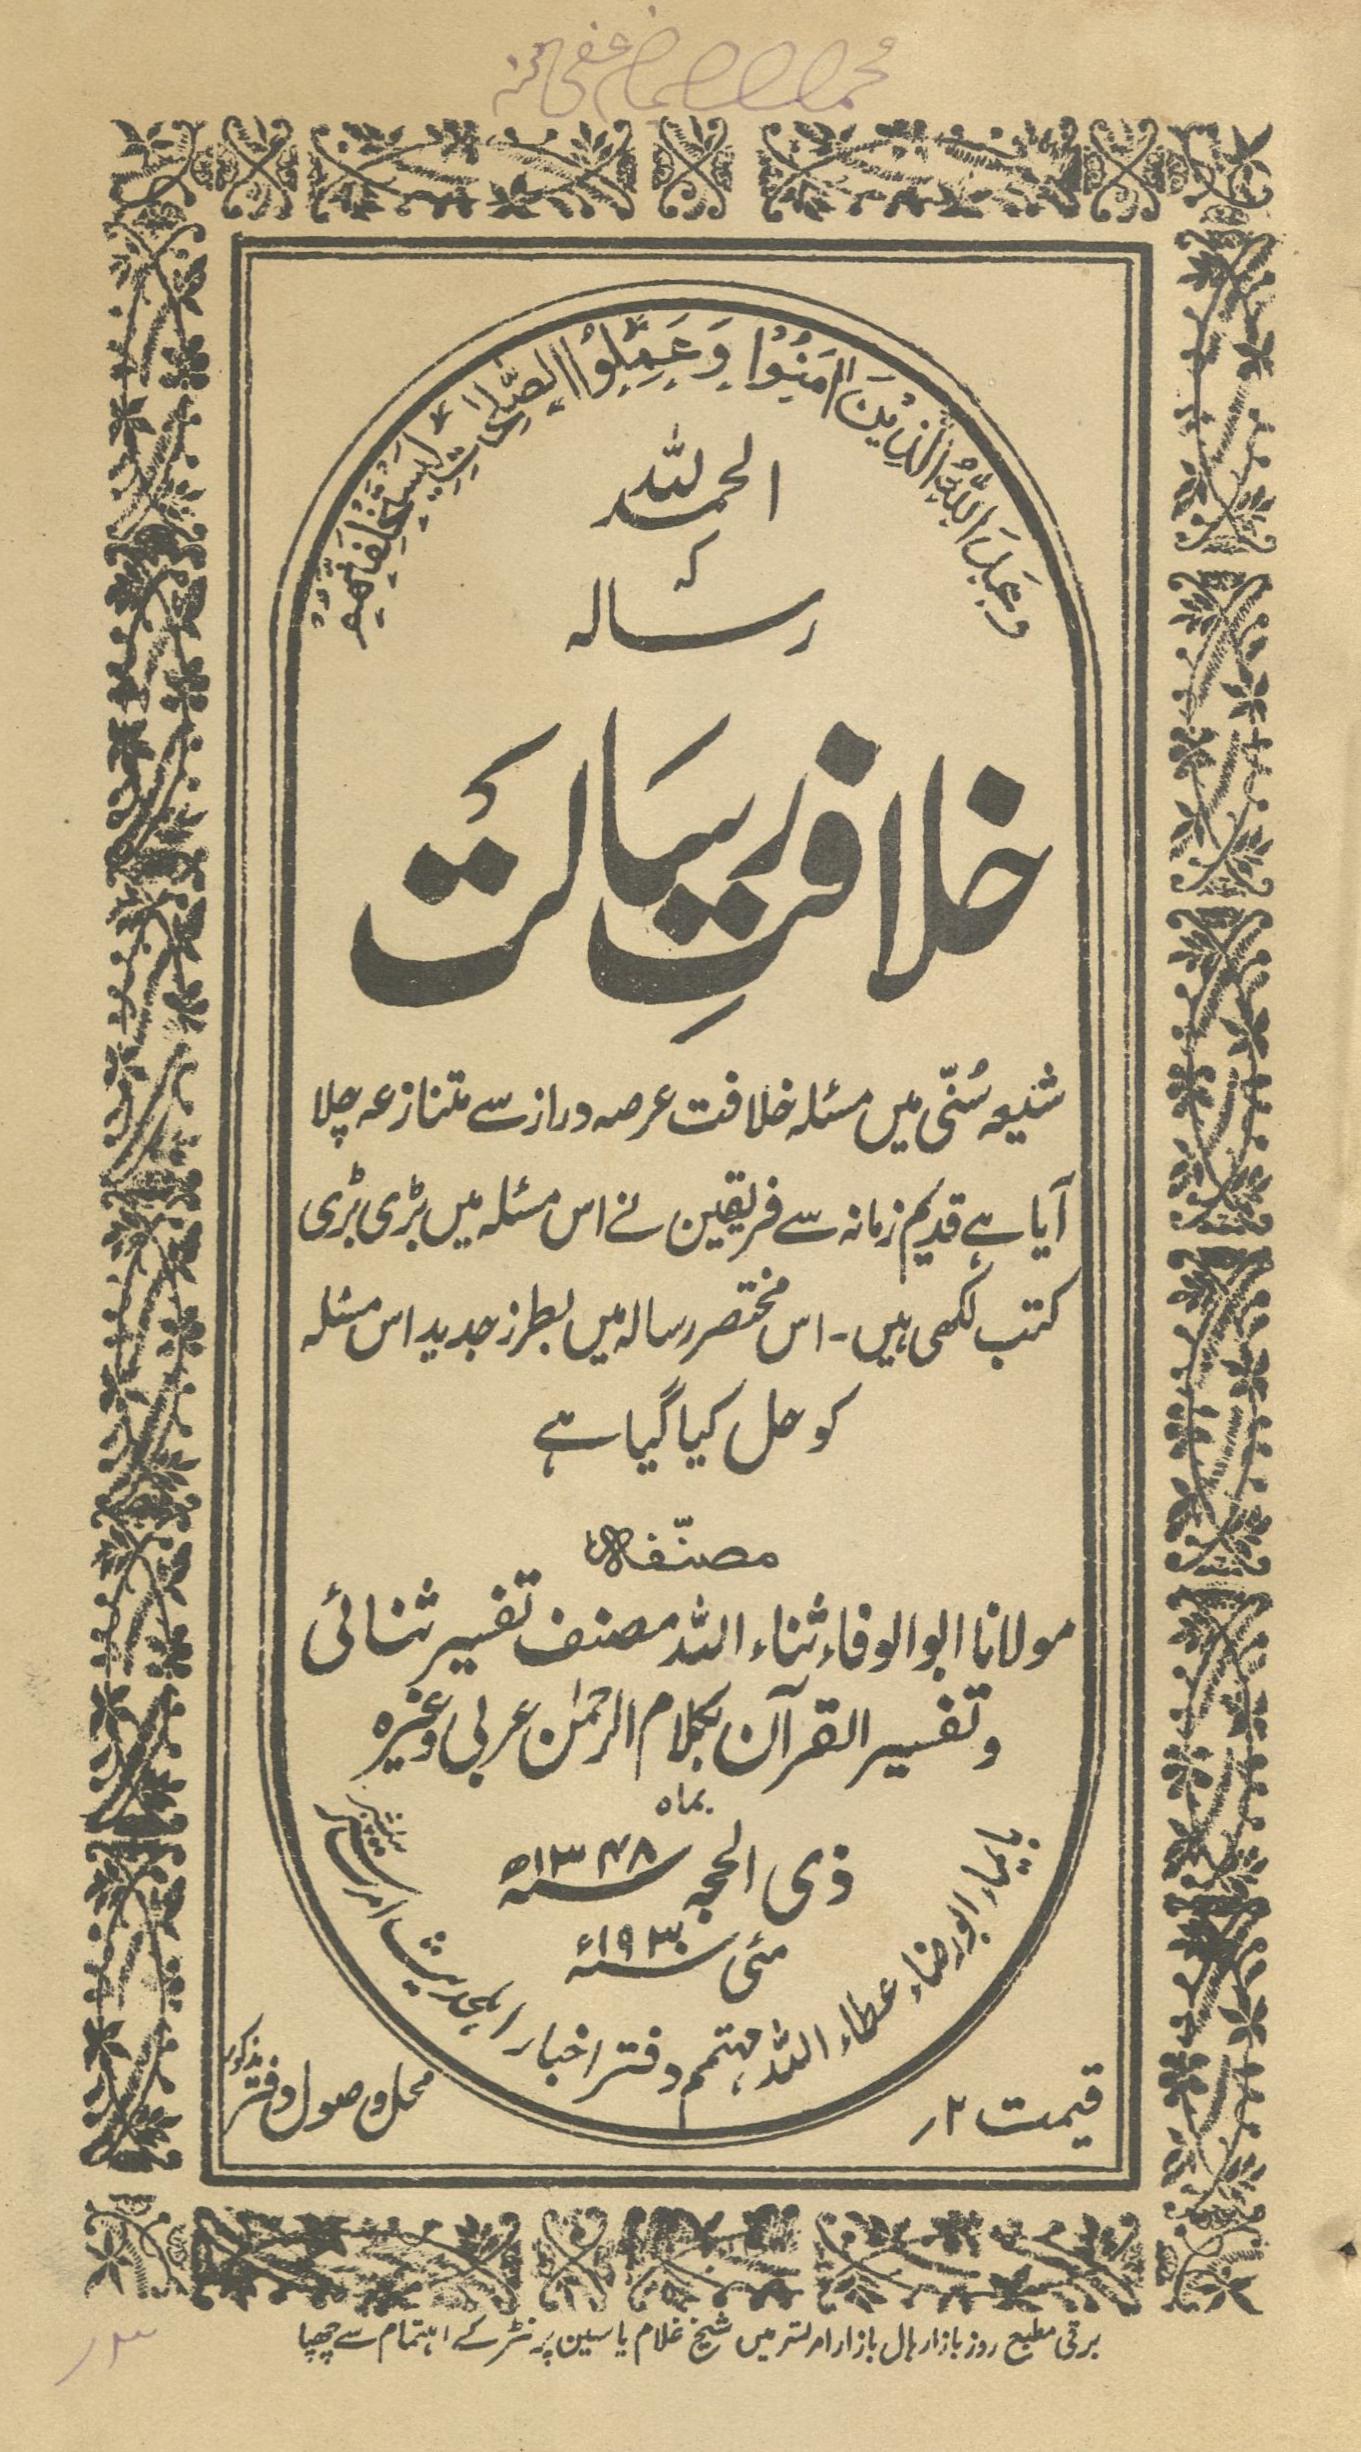 وَعَدَ اللّٰهُ الَّذِيْنَ اٰمَنُوْا وَعَمِلُوا الصّٰلِحٰتِ لَيَسْتَخْلِفَنَّهُمْ
الحمد للہ
کہ
رسالہ
خلافتِ رسالت
شیعہ سُنّی میں مسئلہ خلافت عرصہ دراز سے متنازعہ چلا
آیا ہے قدیم زمانہ سے فریقین نے اس مسئلہ میں بڑی بڑی
کتب لکھی ہیں۔ اس مختصر رسالہ میں بطرز جدید اس مسئلہ
کو حل کیا گیا ہے
مصنّفہ
مولانا ابوالوفاء ثناء اللہ مصنف تفسیر ثنائی
و تفسیر القرآن بکلام الرحمٰن عربی وغیرہ
بماہ
ذی الحجہ سنہ ۱۳۴۸ھ
مئی سنہ ۱۹۳۰ء
بایماء ابورضاء عطاء اللہ مہتمم دفتر اخبار اہلحدیث امرتسر
قیمت ۲؍
محل وصول دفتر مذکور
برقی مطبع روز بازار ہال بازار امرتسر میں شیخ غلام یاسین پرنٹر کے اہتمام سے چھپا